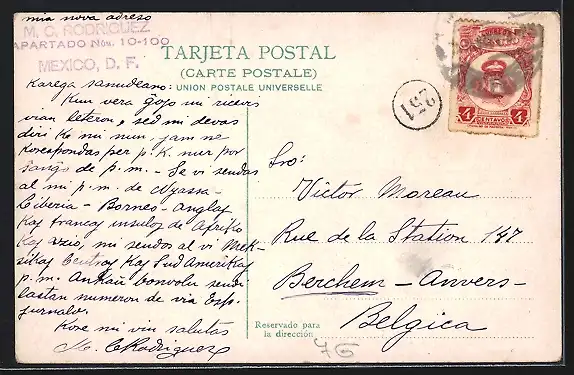 mia nova adreso
M. C. RODRIGUEZ
APARTADO NÚM. 10-100
MEXICO, D. F.
TARJETA POSTAL
(CARTE POSTALE)
UNION POSTALE UNIVERSELLE
Karega samideano:
Kun vera ĝojo mi ricevis
vian leteron, sed mi devas
diri ke mi nun, jam ne
korespondas per p. k. nur por
ŝanĝo de p. m. – Se vi sendas
al mi p. m. de Nyassa –
Liberia – Borneo – anglaj
Kaj francaj insuloj de Afriko
Kaj Azio, mi sendos al vi Mek-
sikaj Centraj Kaj Sud Amerikaj
p. m. Ankaŭ bonvolu sendi
lastan numeron de via Esp.
jurnalo.
Kore mi vin salutas
M. C. Rodriguez
251
CORREOS
4 CENTAVOS 4
Sro:
Victor Moreau
Rue de la Station 147
Berchem – Anvers –
Belgica
Reservado para
la dirección
76